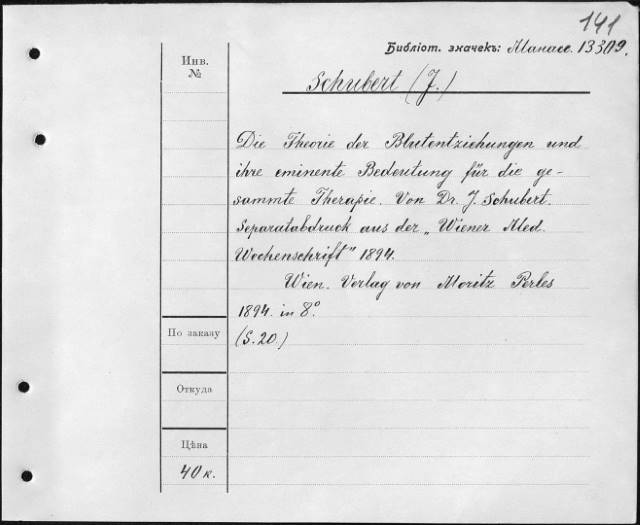 141
Библіот. значекъ: Манасс. 13309.
Инв.
№
Schubert (J.)
Die Theorie der Blutentziehungen und
ihre eminente Bedeutung für die ge-
sammte Therapie. Von Dr. J. Schubert.
Separatabdruck aus der „Wiener Med.
Wochenschrift" 1894.
Wien. Verlag von Moritz Perles
1894. in 8°.
По заказу
(S. 20.)
Откуда
Цѣна
40 к.